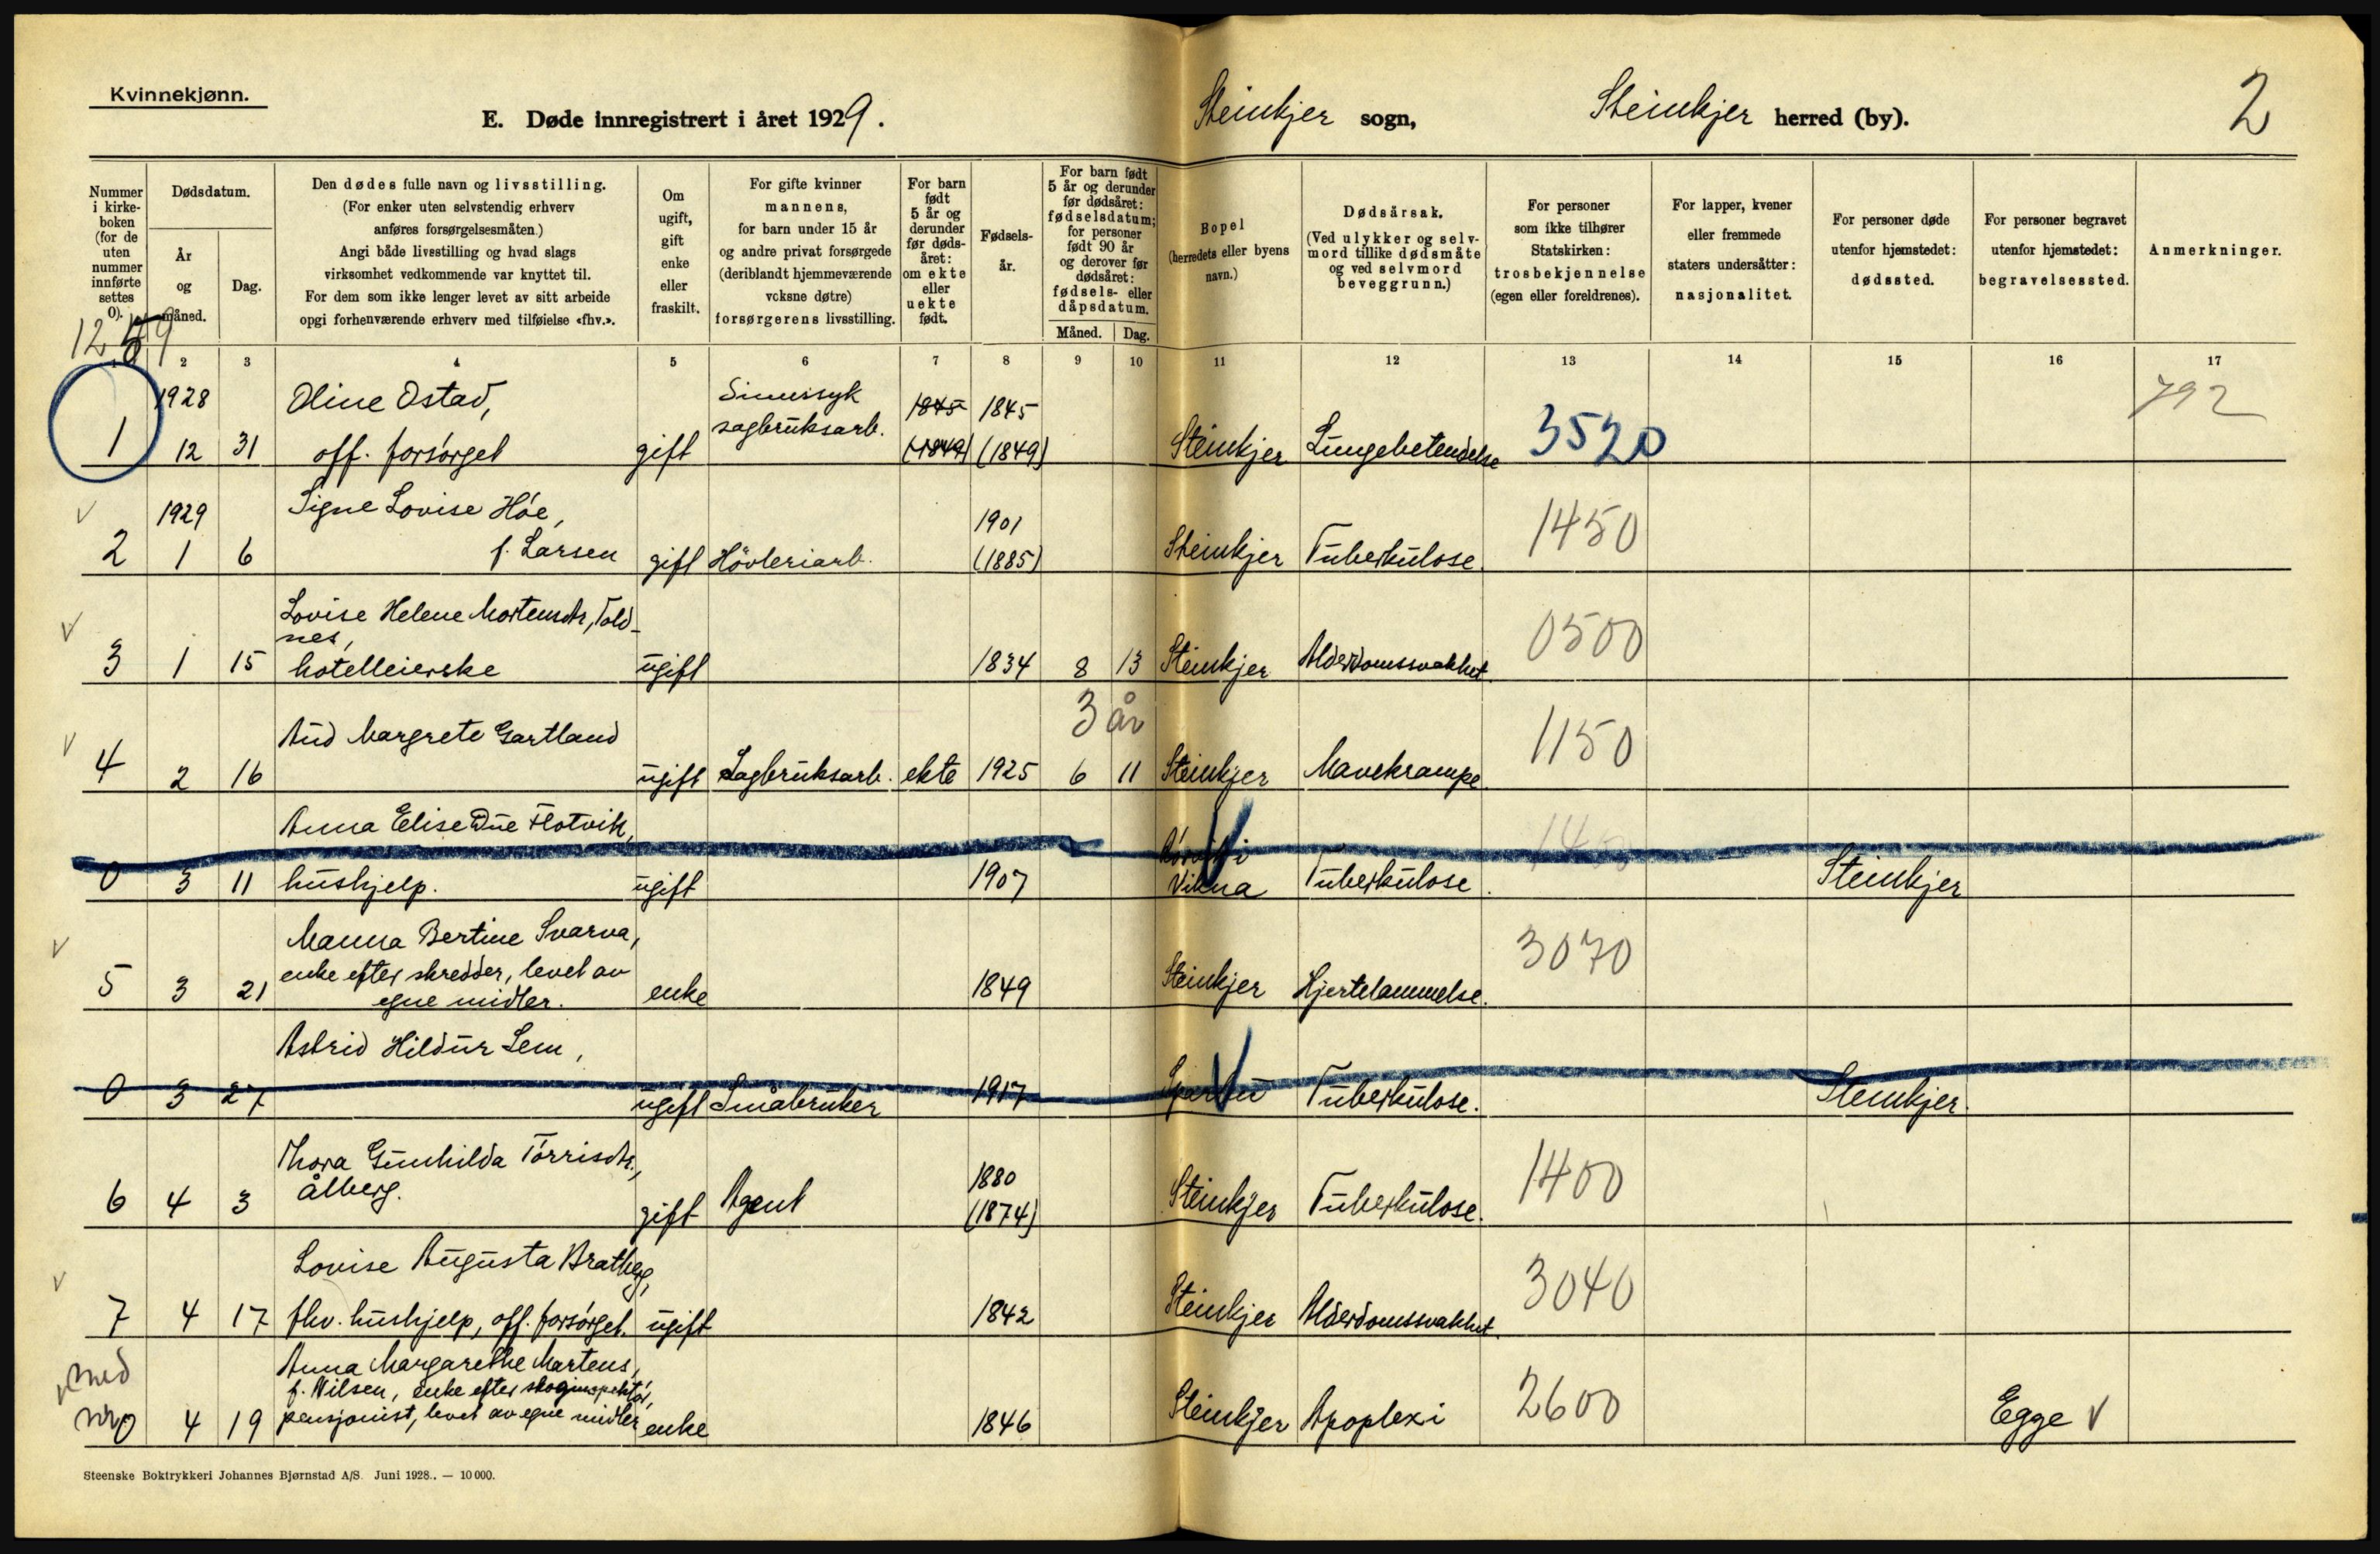 Kvinnekjønn.
E. Døde innregistrert i året 1929.
Steinkjer sogn,
Steinkjer herred (by).
2
Nummer i kirkeboken (for de uten nummer innførte settes 0).
Dødsdatum.
År og måned.
Dag.
Den dødes fulle navn og livsstilling.
(For enker uten selvstendig erhverv
anføres forsørgelsesmåten.)
Angi både livsstilling og hvad slags
virksomhet vedkommende var knyttet til.
For dem som ikke lenger levet av sitt arbeide
opgi forhenværende erhverv med tilføielse «fhv.».
Om ugift, gift enke eller fraskilt.
For gifte kvinner
mannens,
for barn under 15 år
og andre privat forsørgede
(deriblandt hjemmeværende
voksne døtre)
forsørgerens livsstilling.
For barn født 5 år og derunder før dødsåret: om ekte eller uekte født.
Fødselsår.
For barn født 5 år og derunder før dødsåret: fødselsdatum; for personer født 90 år og derover før dødsåret: fødsels- eller dåpsdatum.
Måned. Dag.
Bopel
(herredets eller byens
navn.)
Dødsårsak.
(Ved ulykker og selvmord tillike dødsmåte og ved selvmord beveggrunn.)
For personer
som ikke tilhører
Statskirken:
trosbekjennelse
(egen eller foreldrenes).
For lapper, kvener
eller fremmede
staters undersåtter:
nasjonalitet.
For personer døde
utenfor hjemstedet:
dødssted.
For personer begravet
utenfor hjemstedet:
begravelsessted.
Anmerkninger.
2 3 4 5 6 7 8 9 10 11 12 13 14 15 16 17
1928 Oline Ostad, Sinnssyk 1845 1845 792
1 12 31 off. forsørget gift sagbruksarb. (1849) (1849) Steinkjer Lungebetendelse 3520
V 1929 Signe Lovise Høe, 1901
2 1 6 f. Larsen gift Høvleriarb. (1885) Steinkjer Tuberkulose. 1450
V Lovise Helene Mortensdtr, Toldnes,
3 1 15 hotelleierske ugift 1834 8 13 Steinkjer Alderdomssvakhet. 0500
3 år
V Aud Margrete Gartland
4 2 16 ugift Sagbruksarb. ekte 1925 6 11 Steinkjer Mavekrampe. 1150
Anna Elise Due Flotvik,
0 3 11 hushjelp. ugift 1907 Rørvik i Vikna Tuberkulose. Steinkjer
V Manna Bertine Svarva,
enke efter skredder, levet av
5 3 21 egne midler. enke 1849 Steinkjer Hjertelammelse. 3070
Astrid Hildur Lem,
0 3 27 ugift Småbruker 1917 Sparbu Tuberkulose. Steinkjer.
Thora Gunhilda Tørrisdtr., 1880
6 4 3 Ålberg. gift Agent (1874) Steinkjer Tuberkulose. 1400
V Lovise Augusta Bratberg,
7 4 17 fhv. hushjelp, off. forsørget. ugift 1842 Steinkjer Alderdomssvakhet. 3040
V med Anna Margarethe Martens,
f. Nilsen, enke efter skoginspektør,
nr 0 4 19 pensjonist, levet av egne midler enke 1846 Steinkjer Apoplexi 2600 Egge V
Steenske Boktrykkeri Johannes Bjørnstad A/S. Juni 1928.. — 10 000.